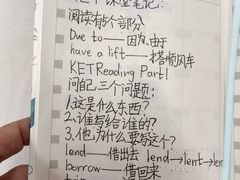 课堂笔记:
阅读有5个部分
Due to——因为,由于
have a lift——搭顺风车
KET Reading Part1
问自己三个问题:
1.这是什么东西?
2.谁写给谁的?
3.他为什么要写这个?
lend——借出去 lend→lent→len
borrow——借回来